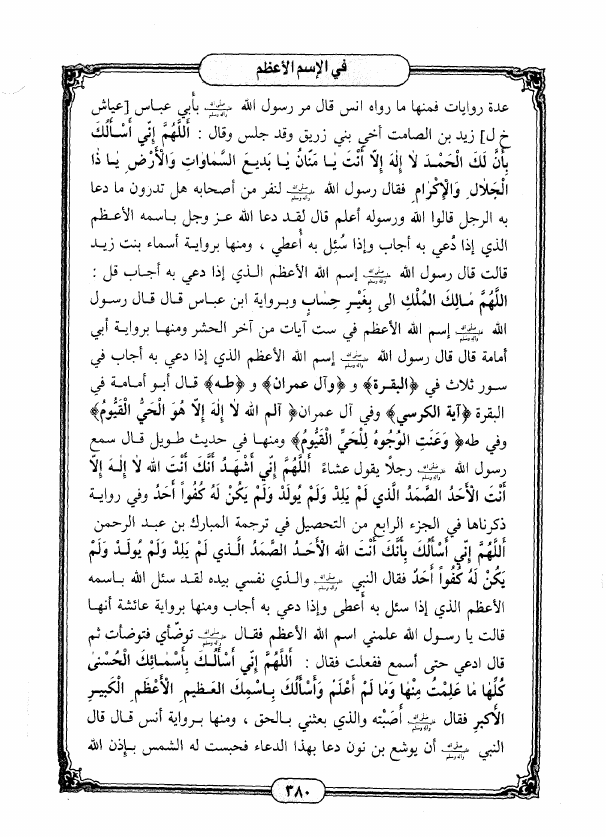 في الإسم الأعظم
عدة روايات فمنها ما رواه انس قال مر رسول الله ﷺ بأبي عباس [عياش
خ ل] زيد بن الصامت أخي بني زريق وقد جلس وقال : أَللَّهُمَّ إِنِّي أَسْأَلُكَ
بِأَنَّ لَكَ الْحَمْدَ لَا إِلٰهَ إِلَّا أَنْتَ يَا مَنَّانُ يَا بَدِيعَ السَّمَاوَاتِ وَالْأَرْضِ يَا ذَا
الْجَلَالِ وَالْإِكْرَامِ فقال رسول الله ﷺ لنفر من أصحابه هل تدرون ما دعا
به الرجل قالوا الله ورسوله أعلم قال لقد دعا الله عز وجل باسمه الأعظم
الذي إذا دُعي به أجاب وإذا سُئِل به أُعطي ، ومنها برواية أسماء بنت زيد
قالت قال رسول الله ﷺ إسم الله الأعظم الذي إذا دعي به أجاب قل :
اللَّهُمَّ مَالِكَ الْمُلْكِ الى بِغَيْرِ حِسَابٍ وبرواية ابن عباس قال قال رسول
الله ﷺ إسم الله الأعظم في ست آيات من آخر الحشر ومنها برواية أبي
أمامة قال قال رسول الله ﷺ إسم الله الأعظم الذي إذا دعي به أجاب في
سور ثلاث في ﴿البقرة﴾ و ﴿وآل عمران﴾ و ﴿طه﴾ قال أبو أمامة في
البقرة ﴿آية الكرسي﴾ وفي آل عمران﴿ آلم الله لَا إِلٰهَ إِلَّا هُوَ الْحَيُّ الْقَيُّومُ﴾
وفي طه﴿ وَعَنَتِ الْوُجُوهُ لِلْحَيِّ الْقَيُّومِ﴾ ومنها في حديث طويل قال سمع
رسول الله ﷺ رجلًا يقول عشاءً أَللَّهُمَّ إِنِّي أَشْهَدُ أَنَّكَ أَنْتَ الله لَا إِلٰهَ إِلَّا
أَنْتَ الْأَحَدُ الصَّمَدُ الَّذي لَمْ يَلِدْ وَلَمْ يُولَدْ وَلَمْ يَكُنْ لَهُ كُفُواً أَحَدٌ وفي رواية
ذكرناها في الجزء الرابع من التحصيل في ترجمة المبارك بن عبد الرحمن
أَللَّهُمَّ إِنِّي أَسْأَلُكَ بِأَنَّكَ أَنْتَ الله الْأَحَدُ الصَّمَدُ الَّذي لَمْ يَلِدْ وَلَمْ يُولَدْ وَلَمْ
يَكُنْ لَهُ كُفُواً أَحَدٌ فقال النبي ﷺ والذي نفسي بيده لقد سئل الله باسمه
الأعظم الذي إذا سئل به أعطى وإذا دعي به أجاب ومنها برواية عائشة أنها
قالت يا رسول الله علمني اسم الله الأعظم فقال ﷺ توضّأي فتوضأت ثم
قال ادعي حتى أسمع ففعلت فقال : أَللَّهُمَّ إِنِّي أَسْأَلُكَ بِأَسْمَائِكَ الْحُسْنَى
كُلِّهَا مَا عَلِمْتُ مِنْهَا وَمَا لَمْ أَعْلَمْ وَأَسْأَلُكَ بِاسْمِكَ الْعَظِيمِ الْأَعْظَمِ الْكَبِيرِ
الْأَكْبَرِ فقال ﷺ أَصَبْتِه والذي بعثني بالحق ، ومنها برواية أنس قال قال
النبي ﷺ أن يوشع بن نون دعا بهذا الدعاء فحبست له الشمس بإذن الله
٣٨٠